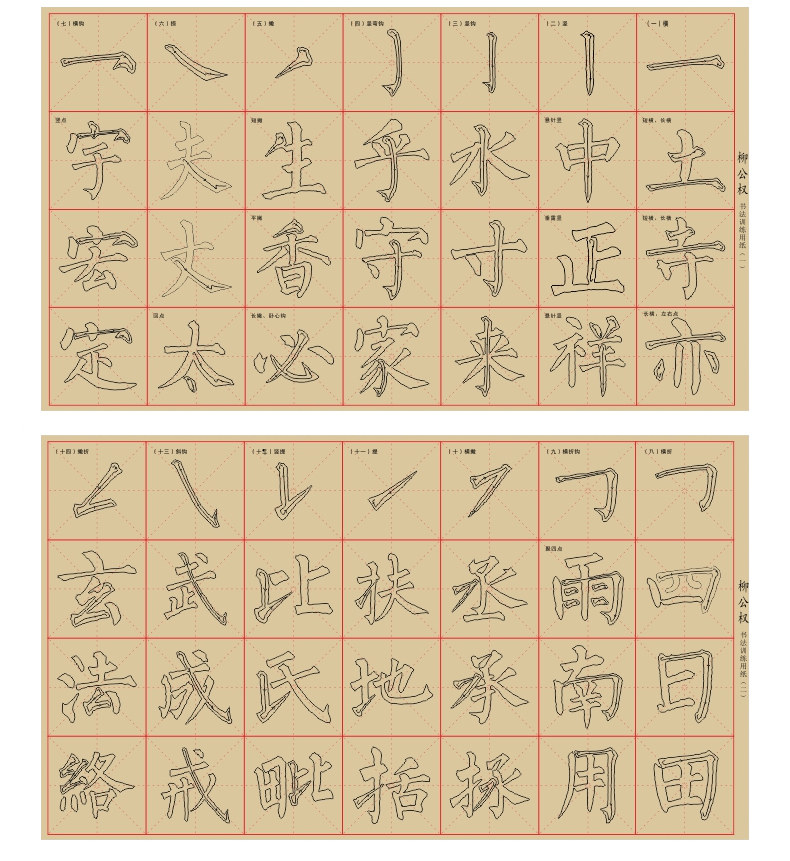 柳公权
书法训练用纸(一)
(一)横
短横、长横
土
短横、长横
寺
长横、左右点
亦
(二)竖
悬针竖
中
垂露竖
正
悬针竖
祥
(三)竖钩
水
寸
来
(四)竖弯钩
乎
守
家
(五)撇
短撇
生
平撇
香
长撇、卧心钩
必
(六)捺
夫
丈
回点
太
(七)横钩
竖点
宇
宏
定
柳公权
书法训练用纸(二)
(八)横折
四
曰
田
(九)横折钩
聚四点
雨
南
用
(十)横撇
丞
承
拯
(十一)提
扶
地
括
(十二)竖提
比
氏
毗
(十三)斜钩
武
成
戒
(十四)撇折
玄
法
絡